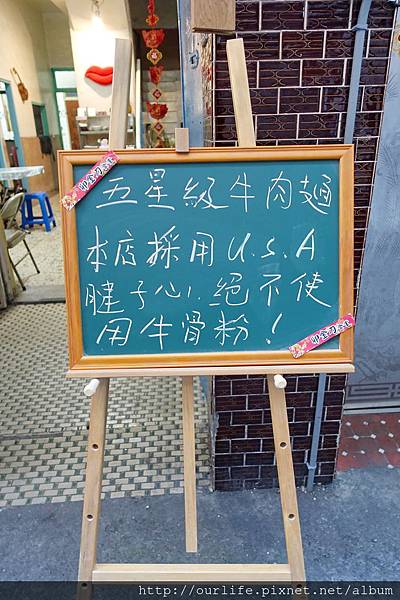 五星級牛肉麵
本店採用U.S.A
腱子心!絕不使
用牛骨粉!
http://ourlife.pixnet.net/album